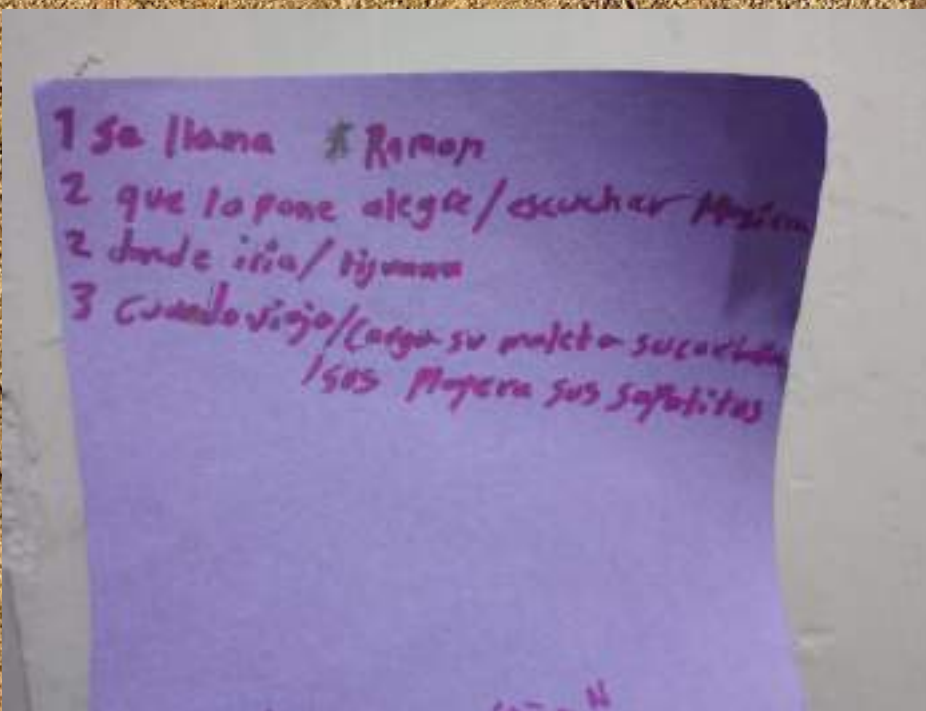 1 se llama Ramon
2 que lo pone alegre/escuchar
2 donde iria/tijuana
3 Cuando viaja/Carga su maleta
/sus sus sapatitos